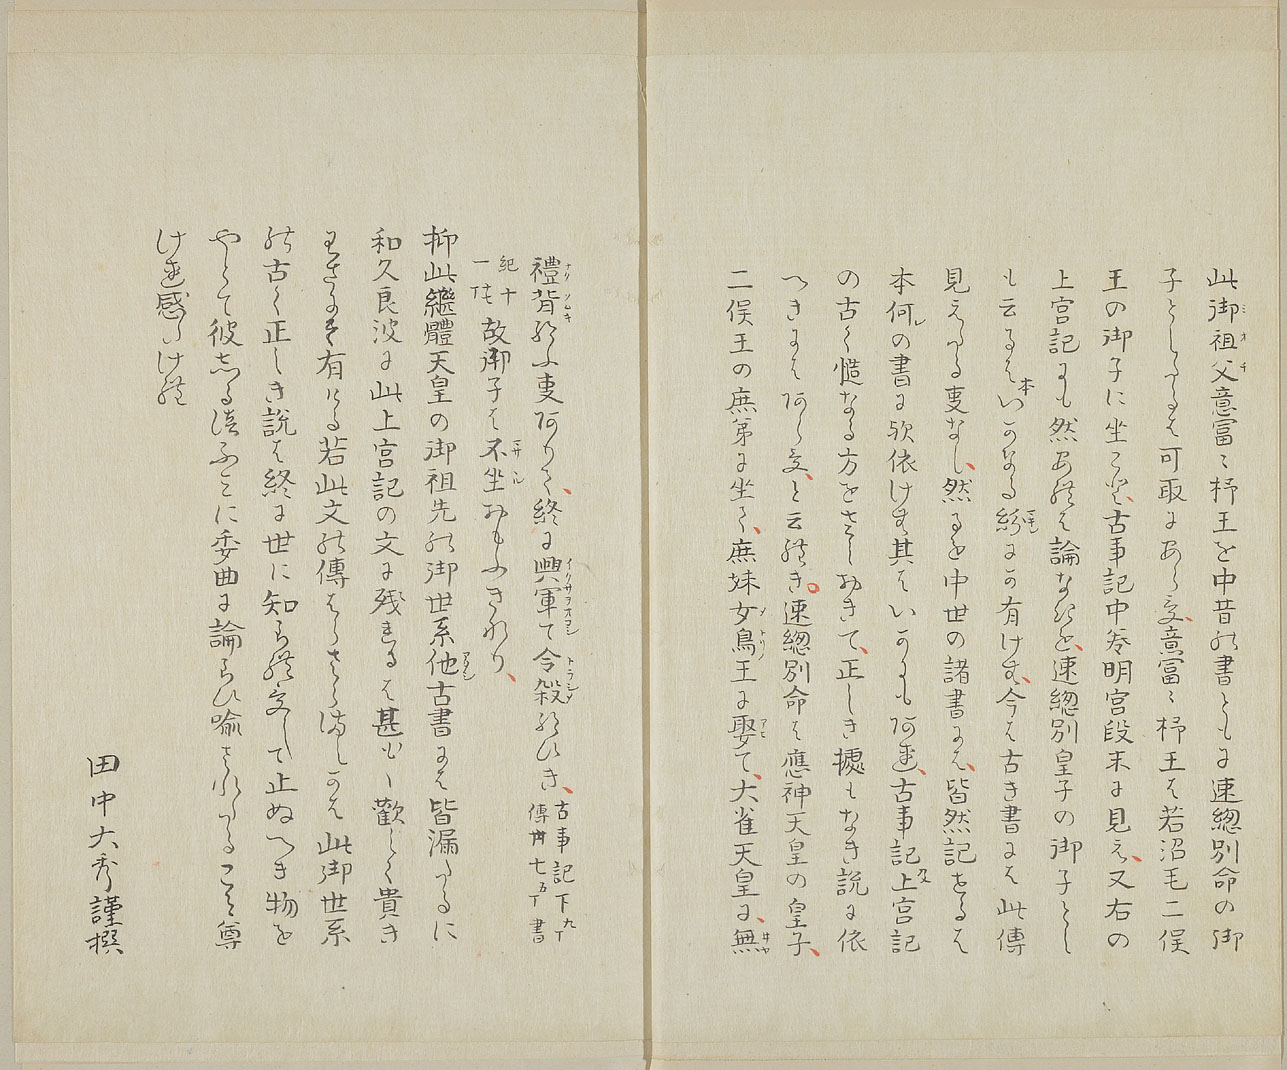 此御祖父意富々杼王を中昔の書ともに速總別命の御
子としたるは可取にあらす、意富々杼王は若沼毛二俣
王の御子に坐こと、古事記中巻明宮段末に見え、又右の
上宮記にも然あれは論なきを、速總別皇子の御子とし
も云るはいかなる紛にか有けむ、今は古き書には此傳
見えたる事なし、然るを中世の諸書には、皆然記せるは
本何の書に欤依けむ其はいかにもあれ、古事記上宮記
の古く慥なる方をさしおきて、正しき據もなき説に依
へきにはあらす、と云れき。速總別命は應神天皇の皇子、
二俣王の庶弟に坐て、庶妹女鳥王に娶て、大雀天皇に、無
禮背給ふ事ありて、終に興軍て令殺給ひき、古事記下九丁傳卅七五丁書
紀十一 故御子は不坐おもふきなり、
抑此繼體天皇の御祖先の御世系他古書には皆漏たるに
和久良波に此上宮記の文に残れるは甚も〱歡しく貴き
わさにそ有ける若此文の傳はらさらましかは此御世系
の古く正しき説は終に世に知られすして止ぬへき物を
やとて彼志る漬ふみに委曲に論らひ喩されたるこそ尊
けれ感けれ
田中大秀謹撰